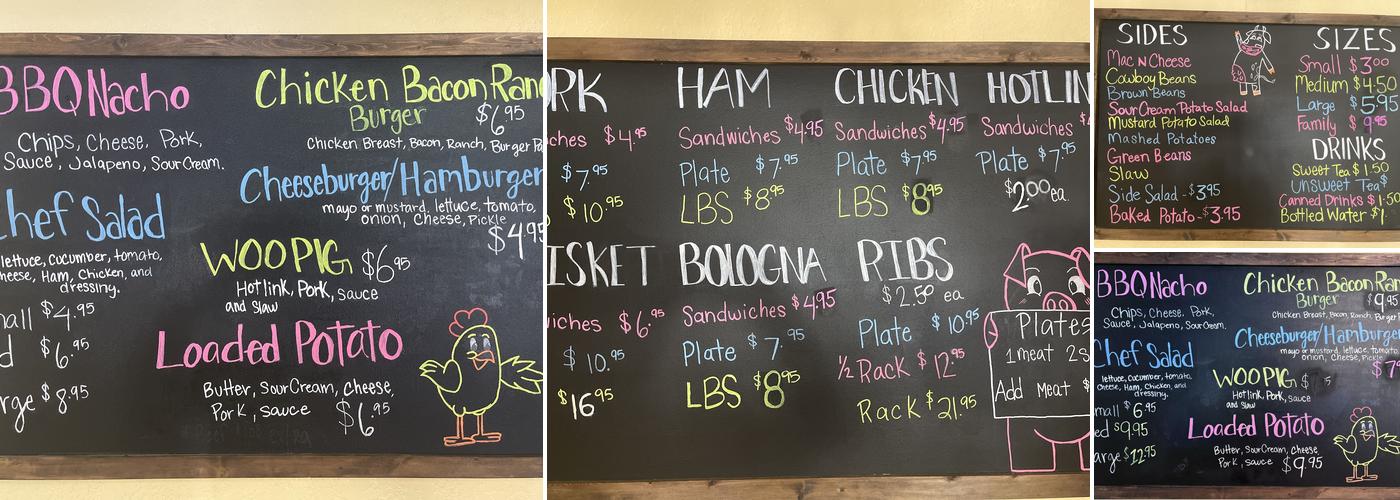 BBQ Nacho
Chips, Cheese, Pork,
Sauce, Jalapeno, Sour Cream.
Chef Salad
lettuce, cucumber, tomato,
cheese, Ham, Chicken, and
dressing.
$4.95
$6.95
$8.95
Chicken Bacon Ran
Burger $6.95
Chicken Breast, Bacon, Ranch, Burger
Cheeseburger/Hamburger
mayo or mustard, lettuce, tomato,
onion, Cheese, Pickle
$4.95
WOO PIG $6.95
Hot link, Pork, sauce
and Slaw
Loaded Potato
Butter, Sour Cream, Cheese,
Pork, sauce $6.95
RK
ches $4.95
$7.95
$10.95
HAM
Sandwiches $4.95
Plate $7.95
LBS $8.95
CHICKEN
Sandwiches $4.95
Plate $7.95
LBS $8.95
HOTLIN
Sandwiches
Plate $7.95
$2.00 ea.
ISKET
iches $6.95
$10.95
$16.95
BOLOGNA
Sandwiches $4.95
Plate $7.95
LBS $8.95
RIBS
$2.50 ea
Plate $10.95
1/2 Rack $12.95
Rack $21.95
Plates
1 meat 2s
Add Meat $
SIDES
Mac N Cheese
Cowboy Beans
Brown Beans
Sour Cream Potato Salad
Mustard Potato Salad
Mashed Potatoes
Green Beans
Slaw
Side Salad - $3.95
Baked Potato - $3.95
SIZES
Small $3.00
Medium $4.50
Large $5.95
Family $9.95
DRINKS
Sweet Tea $1.50
UnSweet Tea $
Canned Drinks $1.50
Bottled Water $1
BBQ Nacho
Chips, Cheese, Pork,
Sauce, Jalapeno, Sour Cream.
Chef Salad
lettuce, cucumber, tomato,
Cheese, Ham, Chicken, and
dressing.
mall $6.95
ed $9.95
arge $12.95
Chicken Bacon Ran
Burger $9.95
Chicken Breast, Bacon, Ranch, Burger
Cheeseburger/Hamburger
mayo or mustard, lettuce, tomato,
onion, Cheese, Pickle
WOO PIG
Hot link, Pork, sauce
and Slaw
Loaded Potato
Butter, Sour Cream, Cheese,
Pork, sauce $9.95